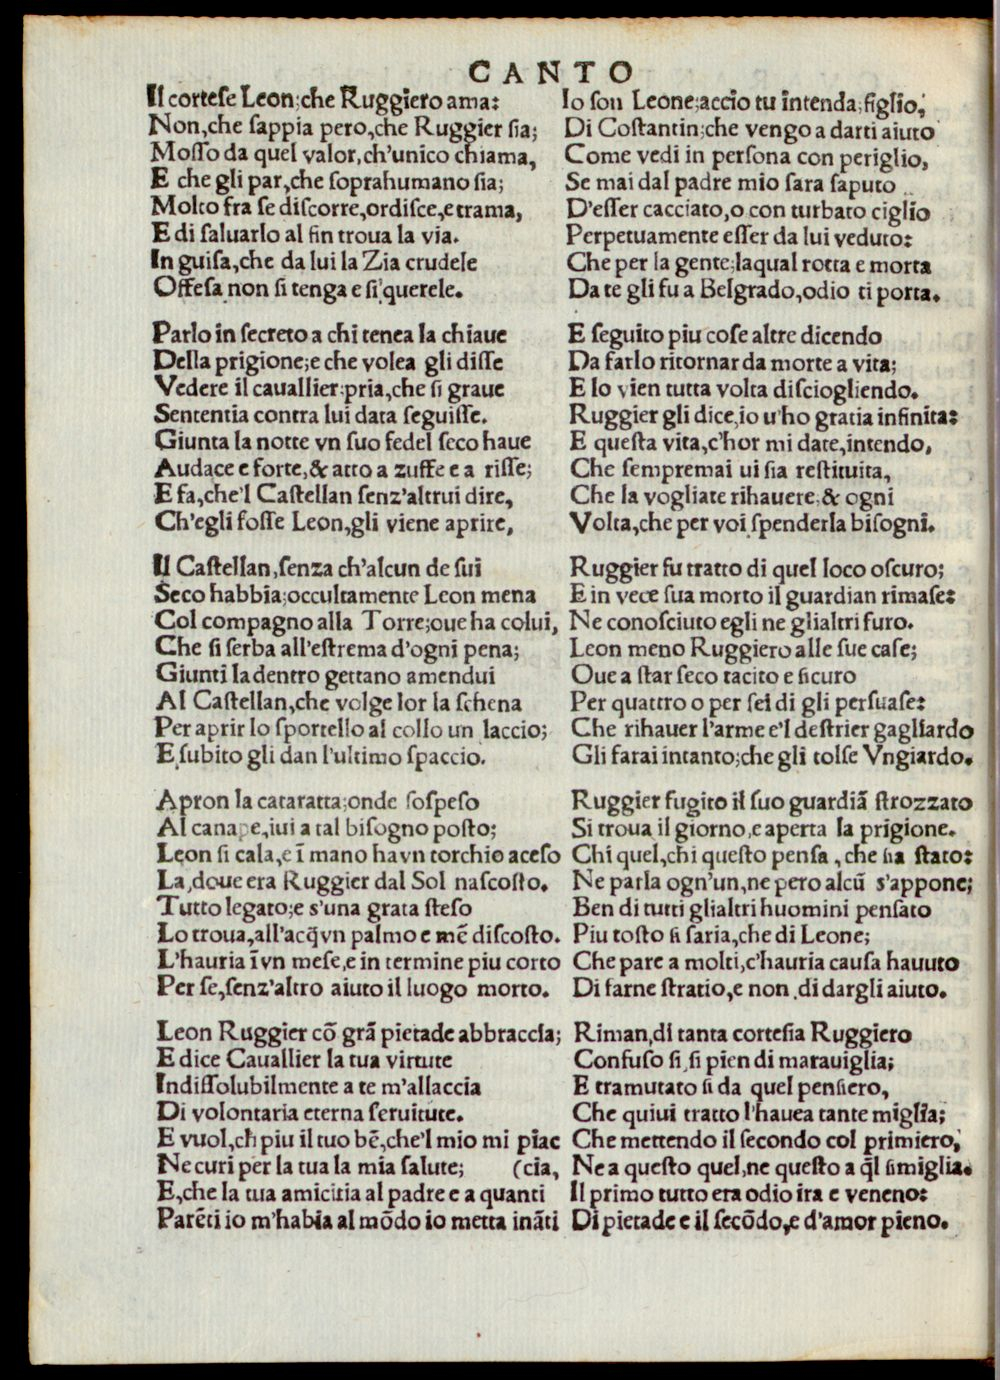 CANTO
Il cortese Leon;che Ruggiero ama:
Non,che sappia pero,che Ruggier sia;
Mosso da quel valor,ch'unico chiama,
E che gli par,che soprahumano sia;
Molto fra se discorre,ordisce,e trama,
E di saluarlo al fin troua la via.
In guisa,che da lui la Zia crudele
Offesa non si tenga e si querele.
Parlo in secreto a chi tenea la chiaue
Della prigione;e che volea gli disse
Vedere il cauallier:pria,che si graue
Sententia contra lui data seguisse.
Giunta la notte vn suo fedel seco haue
Audace e forte,& atto a zuffe e a risse;
E fa,che'l Castellan senz'altrui dire,
Ch'egli fosse Leon,gli viene aprire,
Il Castellan,senza ch'alcun de sui
Seco habbia;occultamente Leon mena
Col compagno alla Torre;oue ha colui,
Che si serba all'estrema d'ogni pena;
Giunti la dentro gettano amendui
Al Castellan,che volge lor la schena
Per aprir lo sportello al collo un laccio;
E subito gli dan l'ultimo spaccio.
Apron la cataratta;onde sospeso
Al canape,iui a tal bisogno posto;
Leon si cala,e ī mano ha vn torchio aceso
La,doue era Ruggier dal Sol nascosto.
Tutto legato;e s'una grata steso
Lo troua,all'acq̄ vn palmo e mē discosto.
L'hauria ī vn mese,e in termine piu corto
Per se,senz'altro aiuto il luogo morto.
Leon Ruggier cō grā pietade abbraccia;
E dice Cauallier la tua virtute
Indissolubilmente a te m'allaccia
Di volontaria eterna seruitute.
E vuol,ch piu il tuo bē,che'l mio mi piac
Ne curi per la tua la mia salute; (cia,
E,che la tua amicitia al padre e a quanti
Parēti io m'habia al mōdo io metta ināti
Io son Leone;accio tu intenda,figlio,
Di Costantin;che vengo a darti aiuto
Come vedi in persona con periglio,
Se mai dal padre mio sara saputo
D'esser cacciato,o con turbato ciglio
Perpetuamente esser da lui veduto:
Che per la gente;laqual rotta e morta
Da te gli fu a Belgrado,odio ti porta.
E seguito piu cose altre dicendo
Da farlo ritornar da morte a vita;
E lo vien tutta volta disciogliendo.
Ruggier gli dice,io u'ho gratia infinita:
E questa vita,c'hor mi date,intendo,
Che sempremai ui sia restituita,
Che la vogliate rihauere,& ogni
Volta,che per voi spenderla bisogni.
Ruggier fu tratto di quel loco oscuro;
E in vece sua morto il guardian rimase:
Ne conosciuto egli ne glialtri furo.
Leon meno Ruggiero alle sue case;
Oue a star seco tacito e sicuro
Per quattro o per sei di gli persuase:
Che rihauer l'arme e'l destrier gagliardo
Gli farai intanto;che gli tolse Vngiardo.
Ruggier fugito il suo guardiā strozzato
Si troua il giorno,e aperta la prigione.
Chi quel,chi questo pensa,che sia stato:
Ne parla ogn'un,ne pero alcū s'appone;
Ben di tutti glialtri huomini pensato
Piu tosto si saria,che di Leone;
Che pare a molti,c'hauria causa hauuto
Di farne stratio,e non di dargli aiuto.
Riman,di tanta cortesia Ruggiero
Confuso si,si pien di marauiglia;
E tramutato si da quel pensiero,
Che quiui tratto l'hauea tante miglia;
Che mettendo il secondo col primiero,
Ne a questo quel,ne questo a q̄l simiglia.
Il primo tutto era odio ira e veneno:
Di pietade e il secōdo,e d'amor pieno.